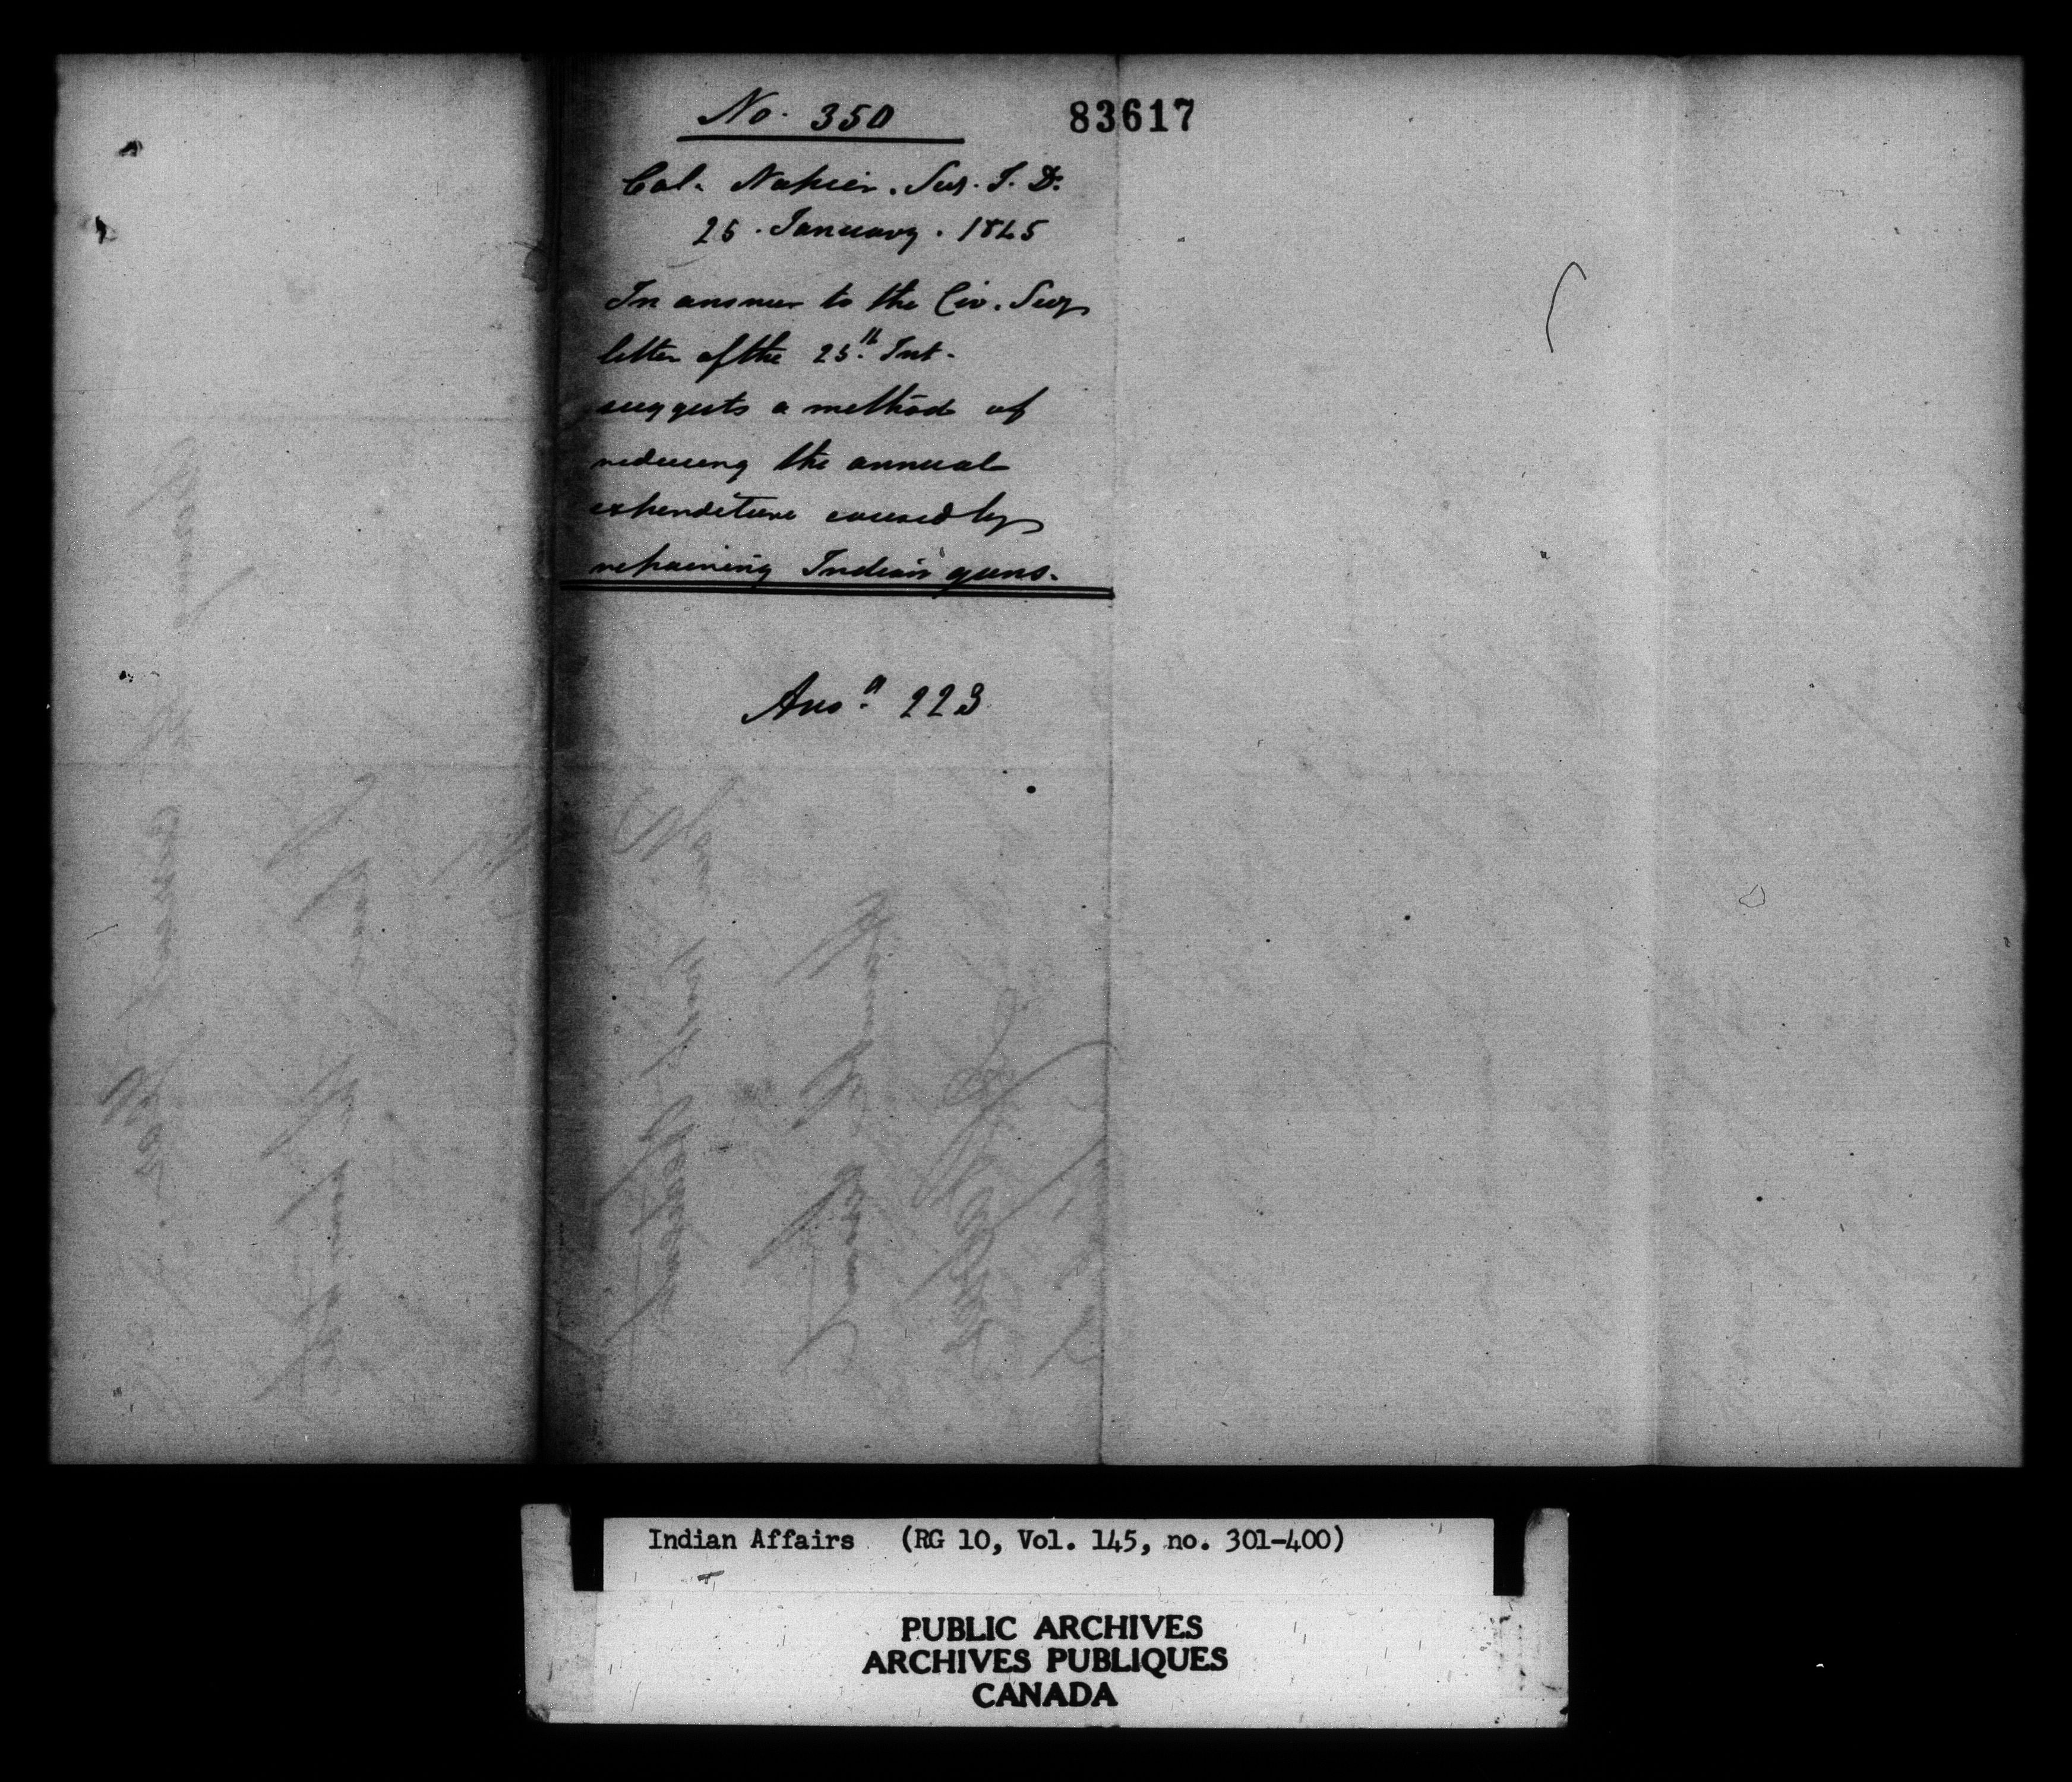 No. 350
83617
Col. Napier. Sec. I. D.
25. January. 1845
In answer to the Civ. Secy
letter of the 25th Inst.
suggests a method of
reducing the annual
expenditure caused by
repairing Indian guns.
Ansd. 223
Indian Affairs (RG 10, Vol. 145, no. 301-400)
PUBLIC ARCHIVES
ARCHIVES PUBLIQUES
CANADA